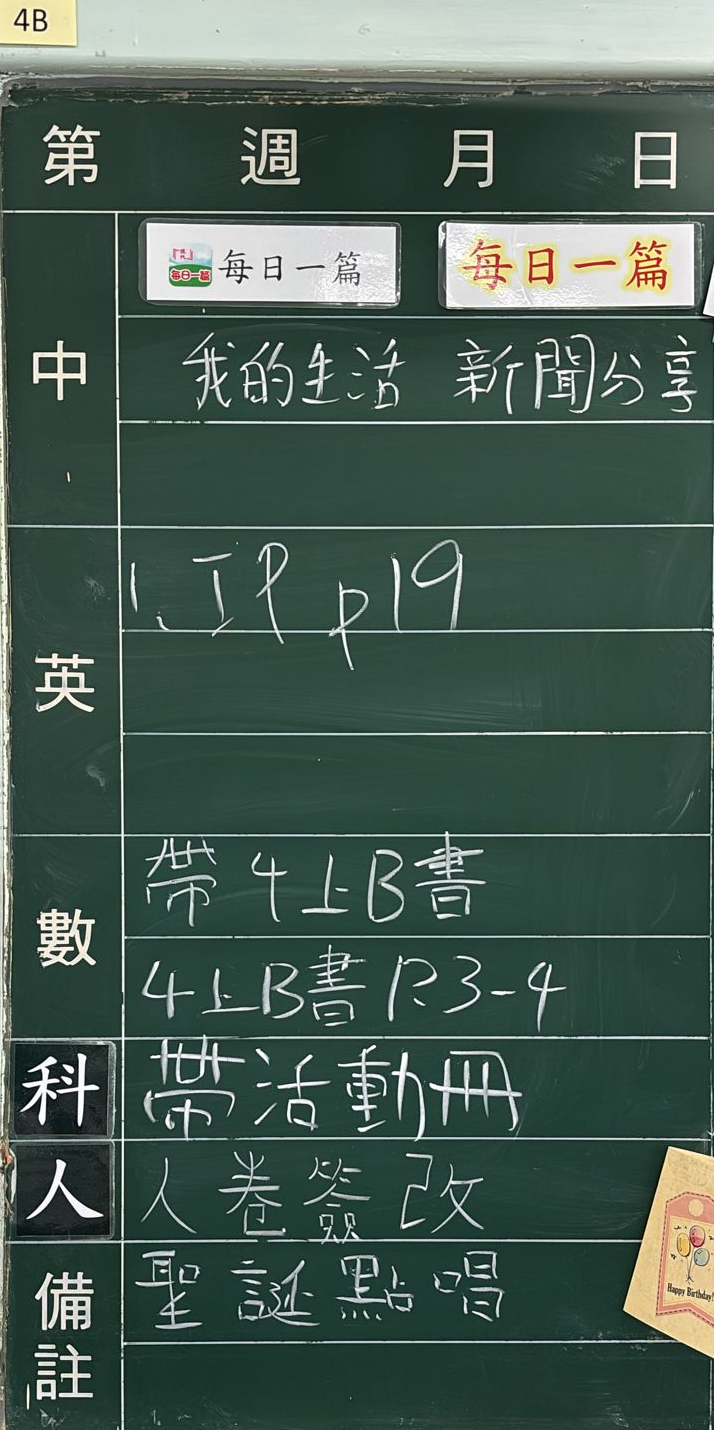 4B
第 週 月 日
每日一篇 每日一篇 每日一篇
中 我的生活 新聞分享
英 1. JP p19
數 帶4上B書
4上B書 P.3-4
科 帶活動冊
人 人卷簽改
備註 聖誕點唱
Happy Birthday!